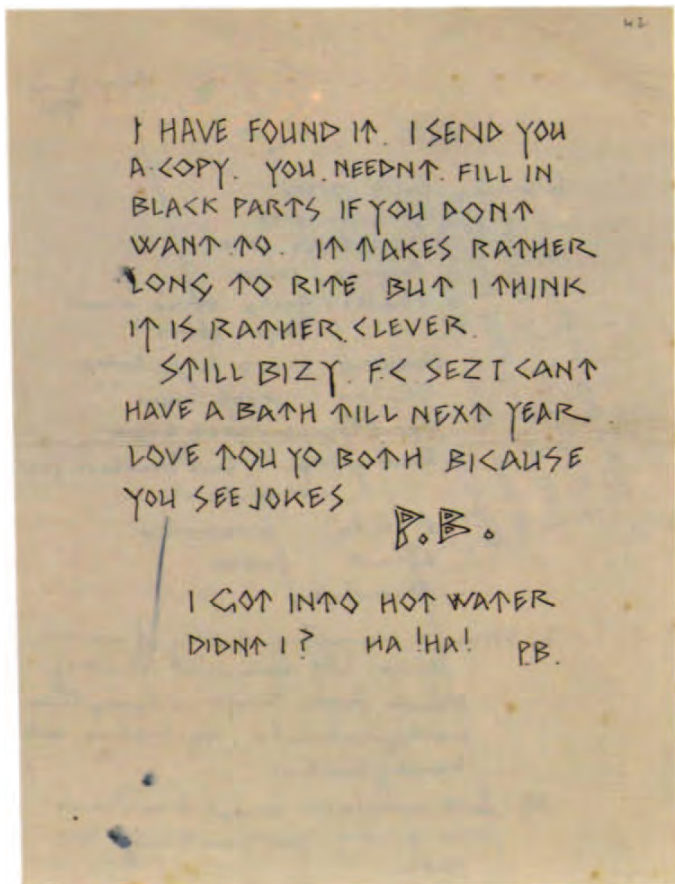 42
I HAVE FOUND IT. I SEND YOU
A COPY. YOU NEEDNT FILL IN
BLACK PARTS IF YOU DONT
WANT TO. IT TAKES RATHER
LONG TO RITE BUT I THINK
IT IS RATHER CLEVER.
STILL BIZY. F.C SEZ I CANT
HAVE A BATH TILL NEXT YEAR
LOVE TOU YO BOTH BICAUSE
YOU SEE JOKES
P.B.
I GOT INTO HOT WATER
DIDNT I? HA!HA!
P.B.